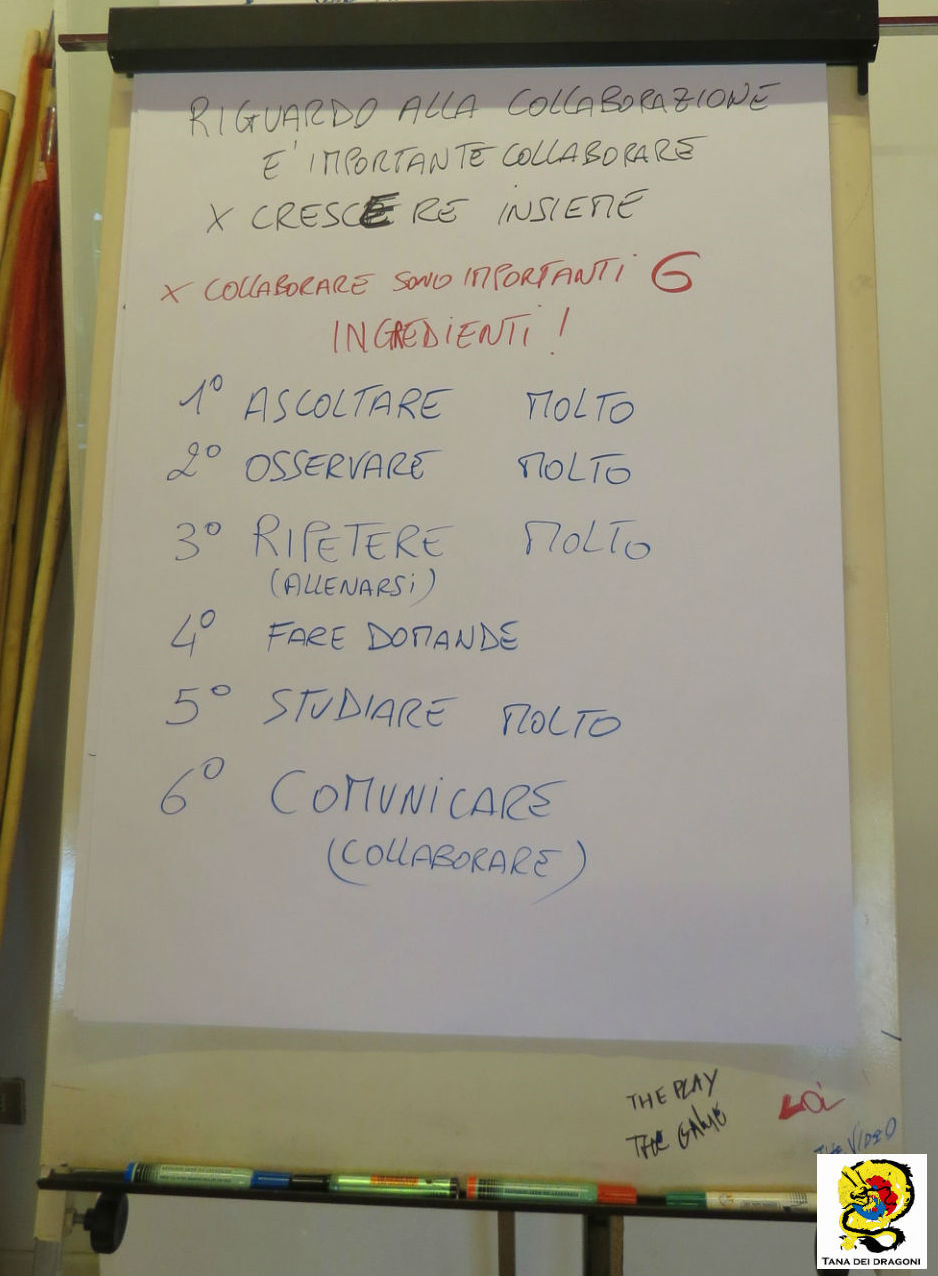 RIGUARDO ALLA COLLABORAZIONE
E' IMPORTANTE COLLABORARE
X CRESCERE INSIEME
X COLLABORARE SONO IMPORTANTI 6
INGREDIENTI !
1° ASCOLTARE MOLTO
2° OSSERVARE MOLTO
3° RIPETERE MOLTO
(ALLENARSI)
4° FARE DOMANDE
5° STUDIARE MOLTO
6° COMUNICARE
(COLLABORARE)
THE PLAY
THE GAME
THE VIDEO
TANA DEI DRAGONI